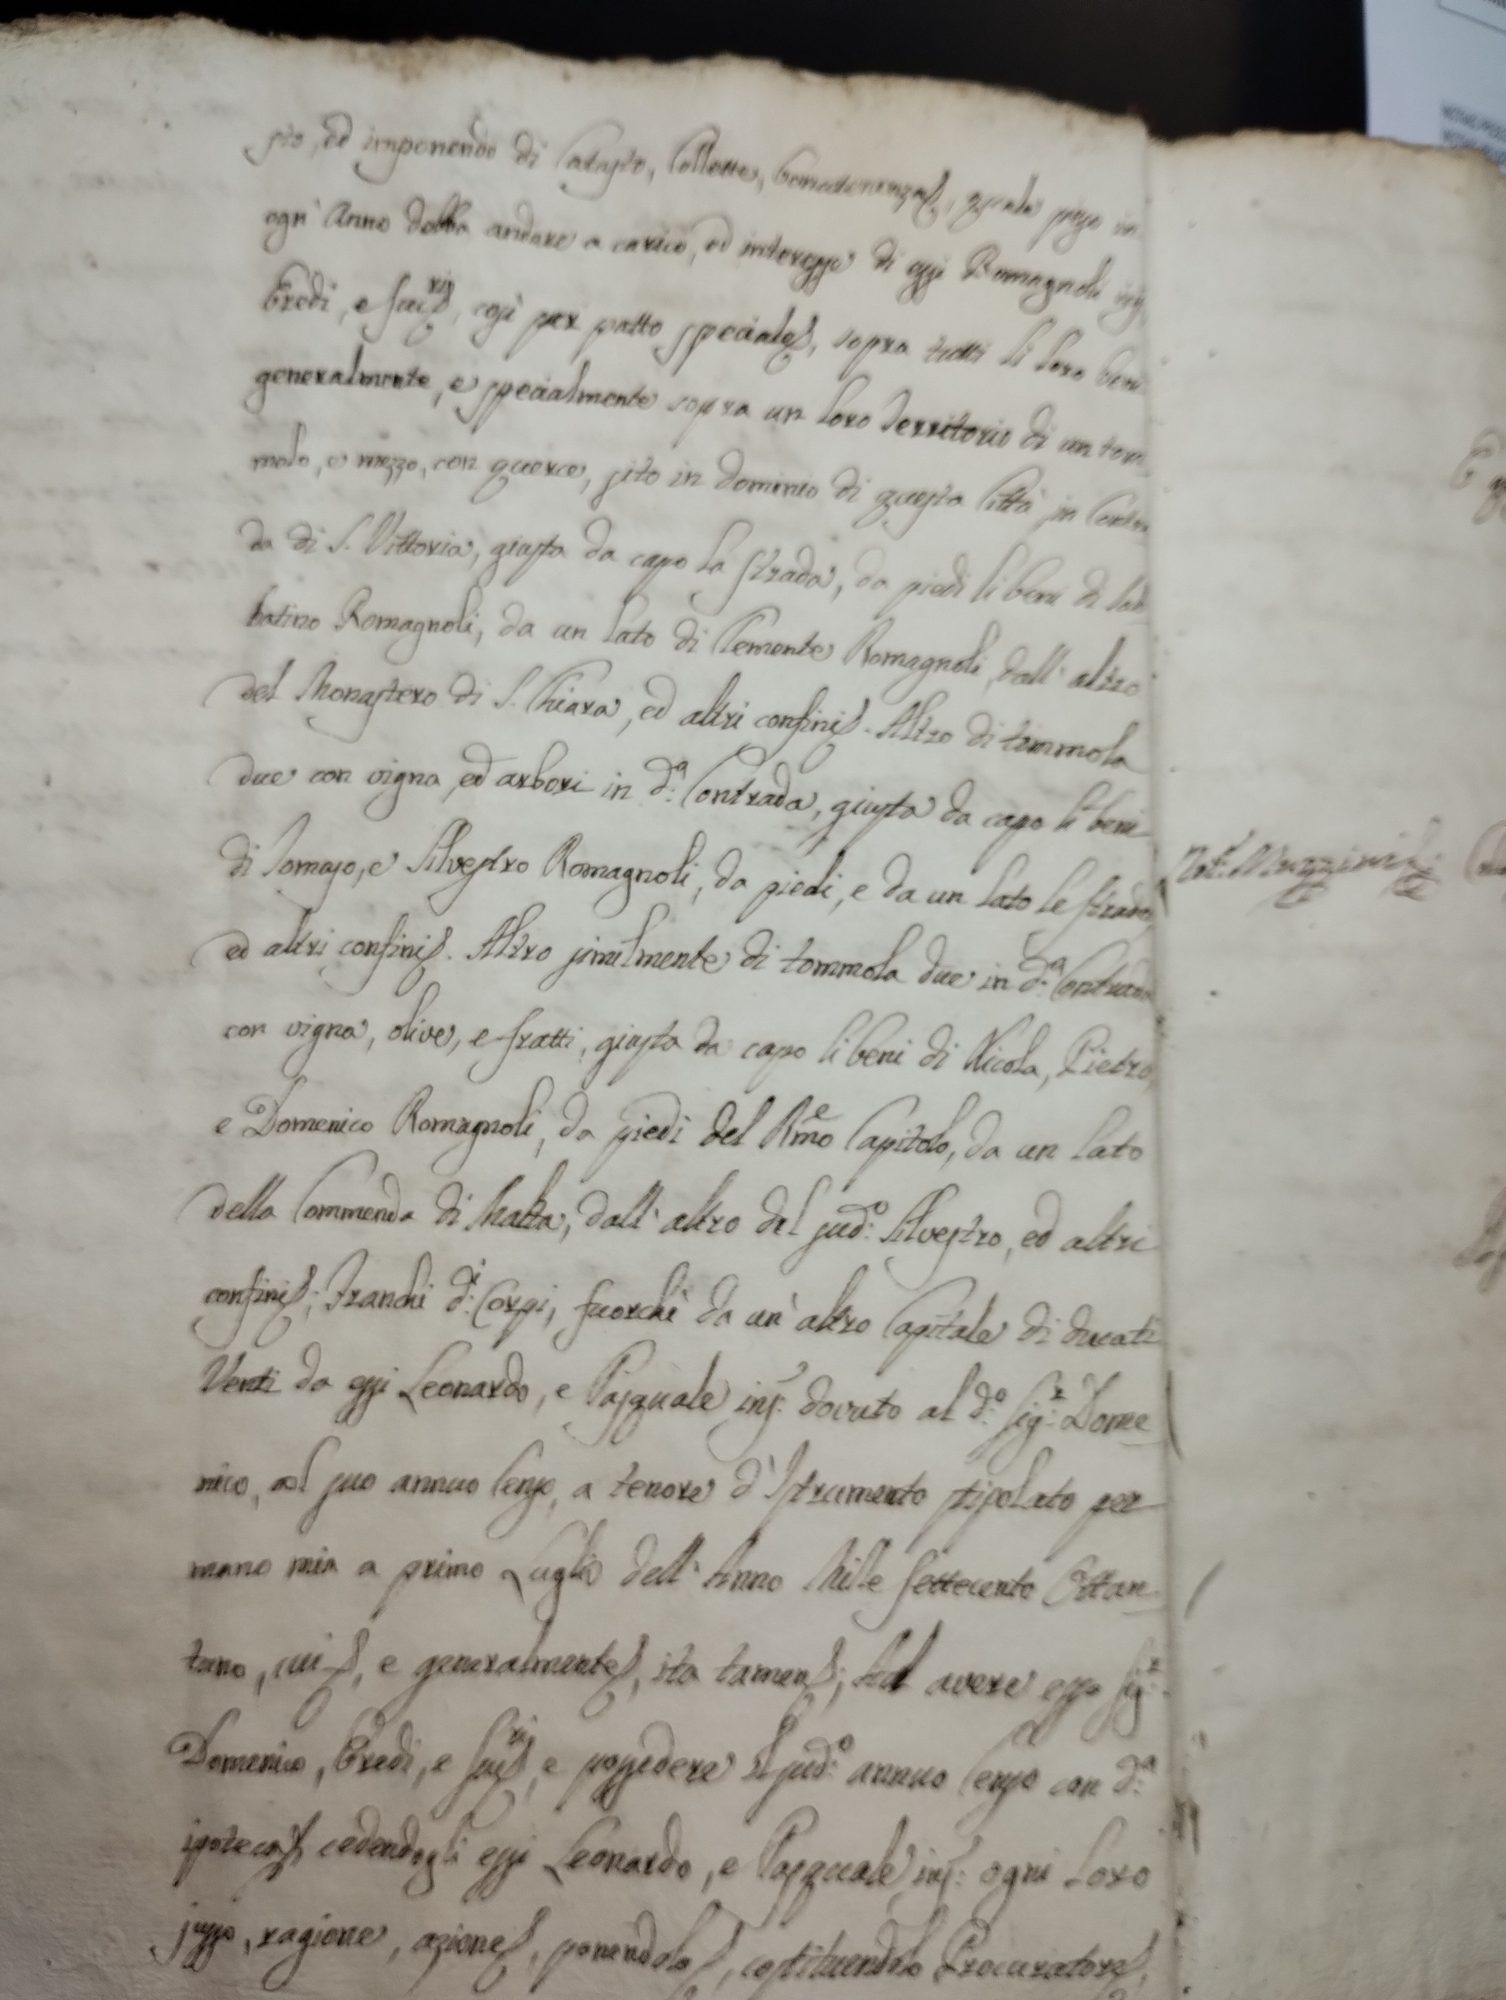 sto, ed imponendo di Catasto, Collette, bonatenenza, quale peso in
ogn' Anno debba andare a carico, ed interesse di essi Romagnoli
Eredi, e, così per patto speciale, sopra tutti li loro beni
generalmente, e specialmente sopra un loro Territorio di un tom
molo, e mezzo, con querce, sito in dominio di questa Città in Contra
da di S. Vittoria, giusta da capo la strada, da piedi li beni di Sab
batino Romagnoli, da un lato di Clemente Romagnoli, dall' altro
del Monastero di S. Chiara, ed altri confini. Altro di tommola
due con vigna, ed arbori in d.ª Contrada, giusta da capo li beni
di Tomaso, e Silvestro Romagnoli, da piedi, e da un lato le strade,
ed altri confini. Altro similmente di tommola due in d.ª Contrada
con vigna, olive, e fratti, giusta da capo li beni di Nicola, Pietro,
e Domenico Romagnoli, da piedi del R̃mo Capitolo, da un lato
della Commenda di Malta, dall' altro del sud.º Silvestro, ed altri
confini; Franchi d.i Corpi, fuorchè da un' altro Capitale di ducati
Venti da essi Leonardo, e Pasquale ins. dovuto al d.º Sig.r Dome
nico, col suo annuo Censo, a tenore d' Istrumento stipolato per
mano mia a primo Luglio dell' Anno Mille Settecento Ottan
tuno, cui, e generalmente, ita tamen; Ad avere esso Sig.r
Domenico, Eredi, e, e possedere il sud.º annuo Censo con d.ª
ipoteca, cedendogli essi Leonardo, e Pasquale ins. ogni loro
jusso, ragione, azione, ponendolo, costituendolo Procuratore,
Not.